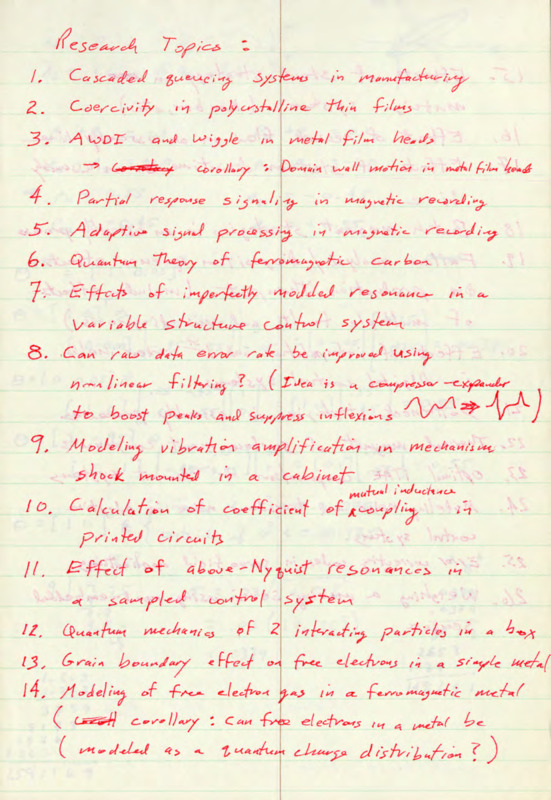 Research Topics :
1. Cascaded queueing systems in manufacturing
2. Coercivity in polycrstalline thin films
3. AWDI and wiggle in metal film heads
→ corollary : Domain wall motion in metal film heads
4. Partial response signaling in magnetic recording
5. Adaptive signal processing in magnetic recording
6. Quantum Theory of ferromagnetic carbon
7. Effects of imperfectly modded resonance in a
variable structure control system
8. Can raw data error rate be improved using
nonlinear filtering? (Idea is a compressor-expander
to boost peaks and suppress inflexions ⇒ )
9. Modeling vibration amplification in mechanism
shock mounted in a cabinet
mutual inductance
10. Calculation of coefficient of coupling in
printed circuits
11. Effect of above-Nyquist resonances in
a sampled control system
12. Quantum mechanics of 2 interacting particles in a box
13. Grain boundary effect on free electrons in a simple metal
14. Modeling of free electron gas in a ferromagnetic metal
( corollary : Can free electrons in a metal be
( modeled as a quantum charge distribution? )